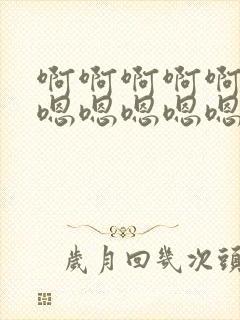 啊啊啊啊啊
嗯嗯嗯嗯嗯
歲月回幾次頭